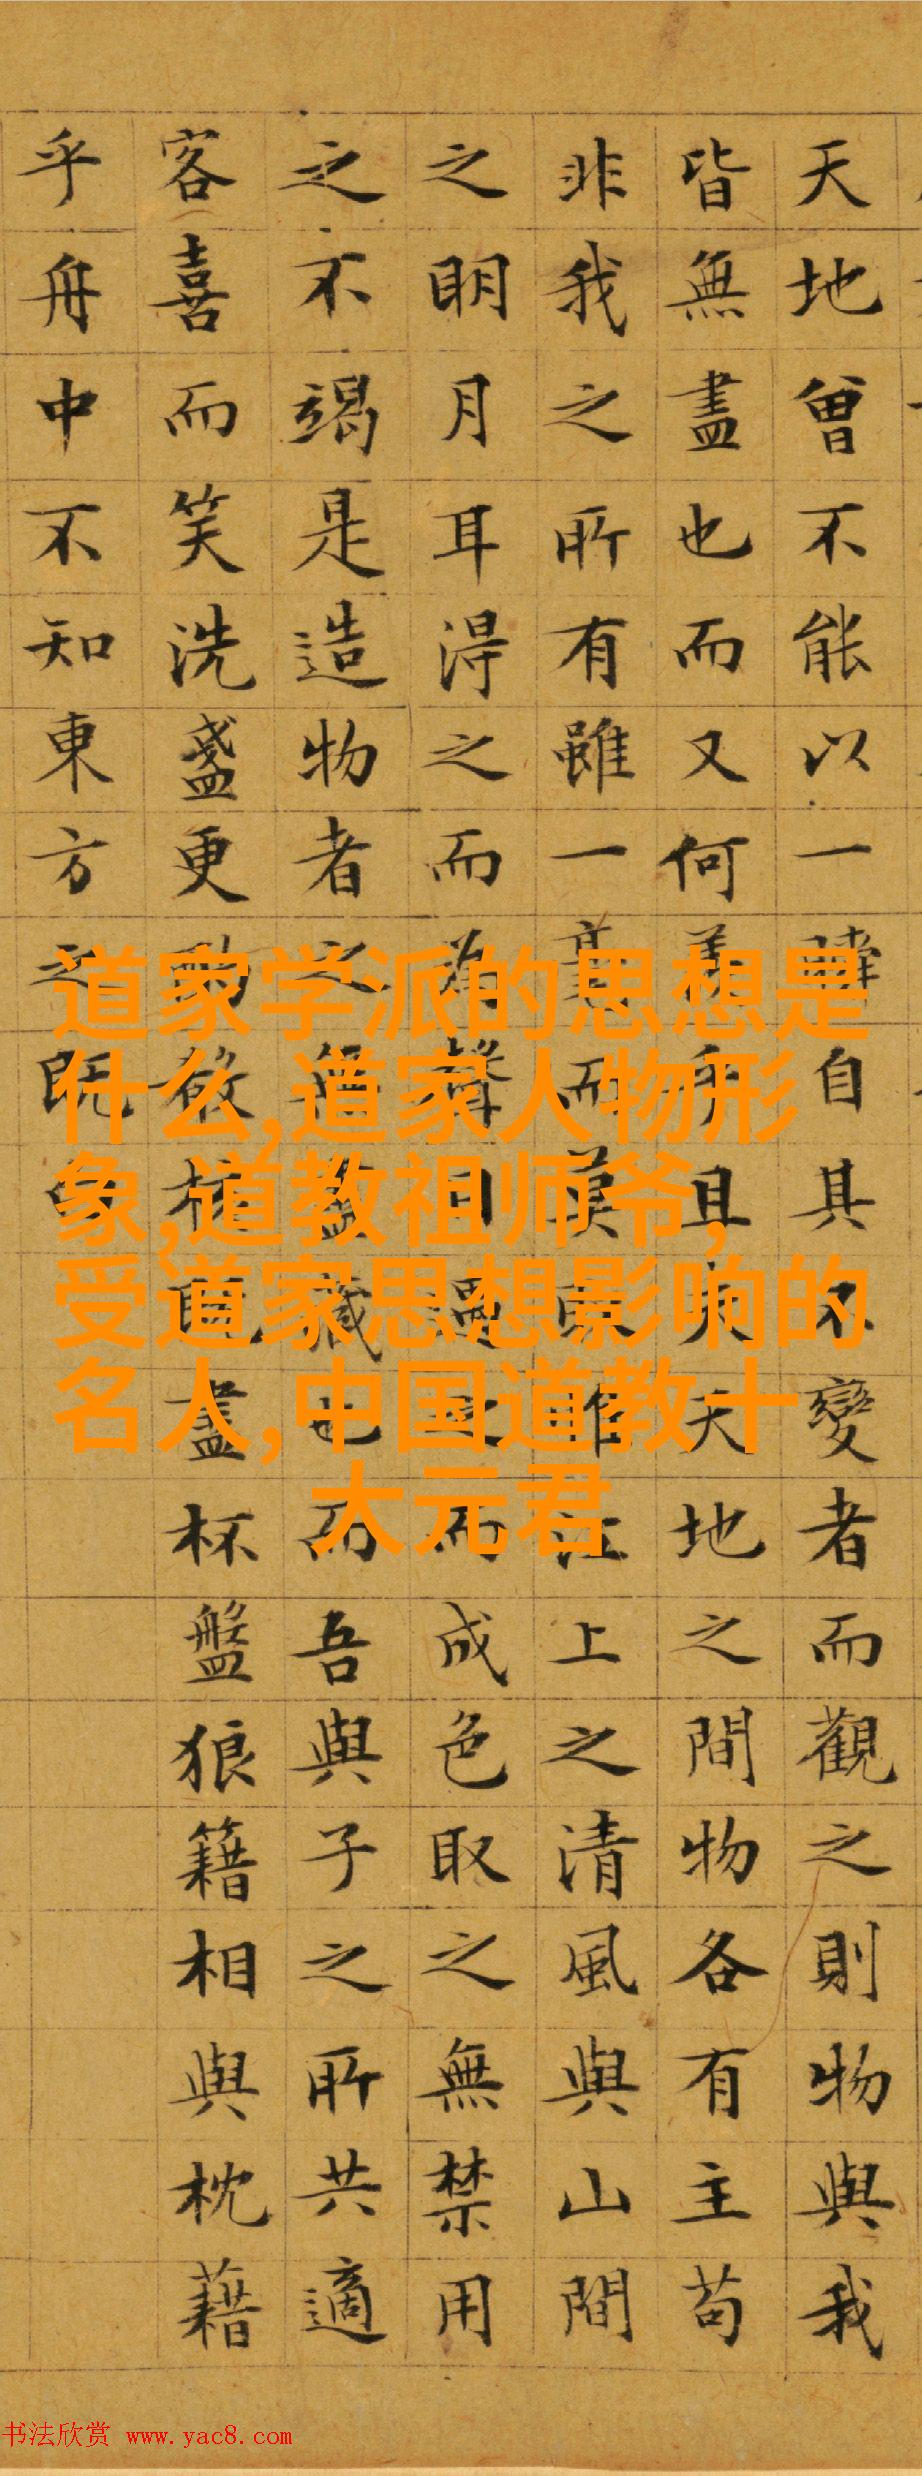 天地曾不能以一瞬自其不變者而觀之則物與我
皆無盡也而又何羨乎且夫天地之間物各有主苟
非我之所有雖一毫而莫取惟江上之清風與山間
之明月耳得之而為聲目遇之而成色取之無禁用
之不竭是造物者之無盡藏也而吾與子之所共適
客喜而笑洗盞更酌殽核既盡杯盤狼籍相與枕藉
乎舟中不知東方之既白
道家学派的思想是
什么,道家人物形
象,道教祖师爷,
受道家思想影响的
名人,中国道教十
大元君
书法欣赏 www.yac8.com